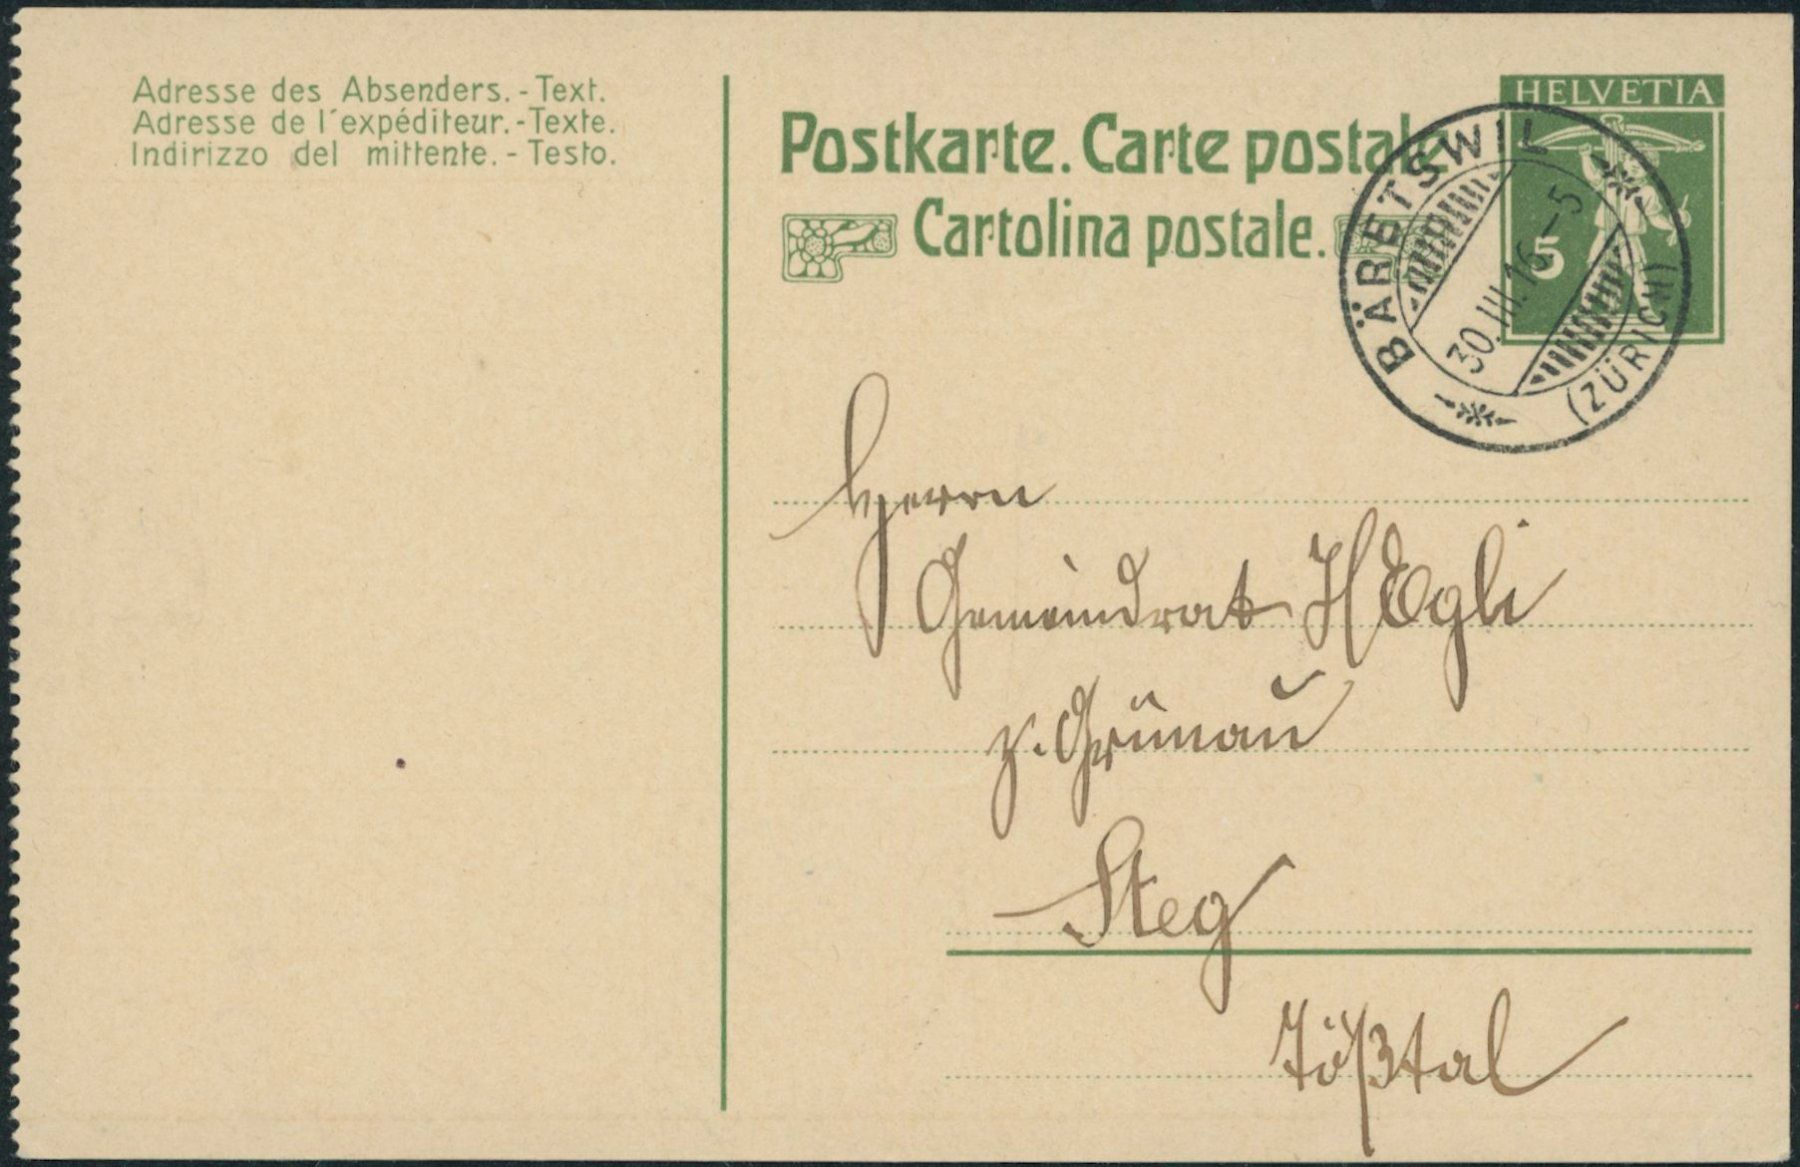 Adresse des Absenders. - Text.
Adresse de l'expéditeur. - Texte.
Indirizzo del mittente. - Testo.
Postkarte. Carte postale
Cartolina postale.
HELVETIA
5
BÄRETSWIL
30.III.16-5
(ZÜRICH)
Herrn
Gemeindrat H Egli
z. Grünau
Steg
Tößtal